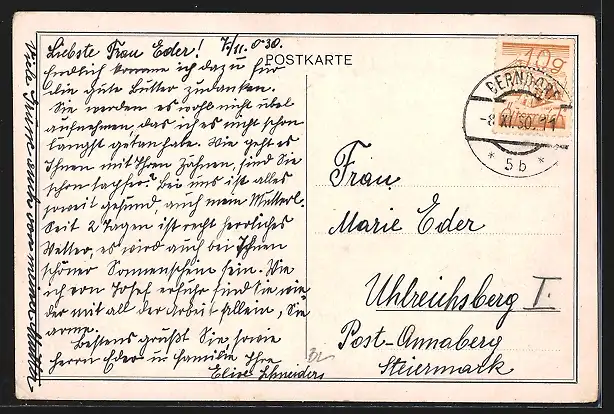 Liebste Frau Eder! 7./11. 030.
Endlich komme ich dazu für
die gute Butter zudanken.
Sie werden es wohl nicht übel
aufnehmen, das ich es nicht schon
längst getan habe. Wie geht es
Ihnen mit Ihren Zähnen, sind Sie
schon Bei uns ist alles
soweit gesund, auch mein Mutterl.
Seit 2 Tagen ist recht herrliches
Wetter, es wird auch bei Ihnen
schöner Sonnenschein sein. Wie
ich von Josef erfuhr sind Sie wie
der mit all der Arbeit allein, Sie
arme.
Bestens grüßt Sie sowie
Herrn Eder u. Familie Ihre
Elise Schneiders
Viele Grüße auch von
POSTKARTE
10g
BERNDORF
-8.XI.30.11
* 5b *
Frau
Marie Eder
Uhlreichsberg I.
Post-Annaberg
Steiermark